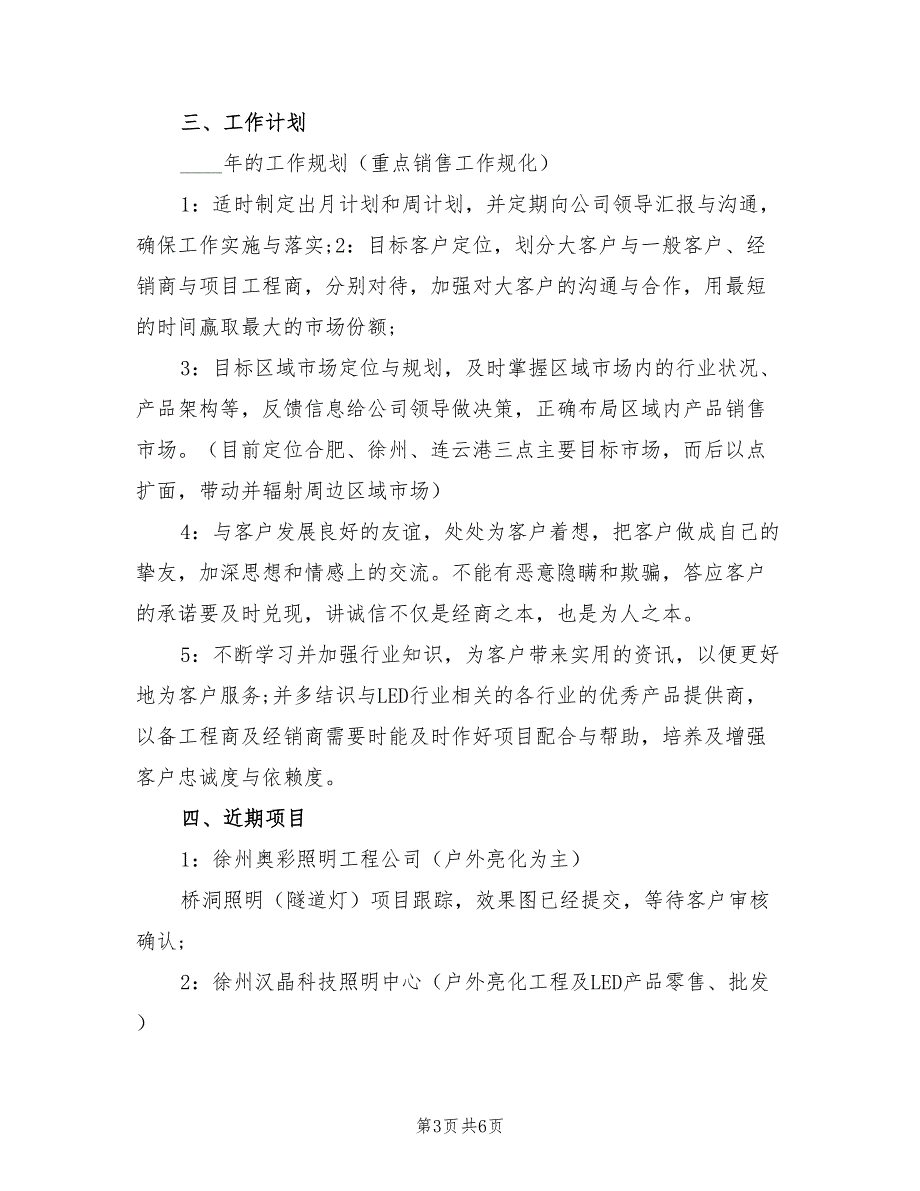 三、工作计划
____年的工作规划（重点销售工作规化）
1：适时制定出月计划和周计划，并定期向公司领导汇报与沟通，
确保工作实施与落实;2：目标客户定位，划分大客户与一般客户、经
销商与项目工程商，分别对待，加强对大客户的沟通与合作，用最短
的时间赢取最大的市场份额;
3：目标区域市场定位与规划，及时掌握区域市场内的行业状况、
产品架构等，反馈信息给公司领导做决策，正确布局区域内产品销售
市场。（目前定位合肥、徐州、连云港三点主要目标市场，而后以点
扩面，带动并辐射周边区域市场）
4：与客户发展良好的友谊，处处为客户着想，把客户做成自己的
挚友，加深思想和情感上的交流。不能有恶意隐瞒和欺骗，答应客户
的承诺要及时兑现，讲诚信不仅是经商之本，也是为人之本。
5：不断学习并加强行业知识，为客户带来实用的资讯，以便更好
地为客户服务;并多结识与LED行业相关的各行业的优秀产品提供商，
以备工程商及经销商需要时能及时作好项目配合与帮助，培养及增强
客户忠诚度与依赖度。
四、近期项目
1：徐州奥彩照明工程公司（户外亮化为主）
桥洞照明（隧道灯）项目跟踪，效果图已经提交，等待客户审核
确认;
2：徐州汉晶科技照明中心（户外亮化工程及LED产品零售、批发
）
第3页 共6页